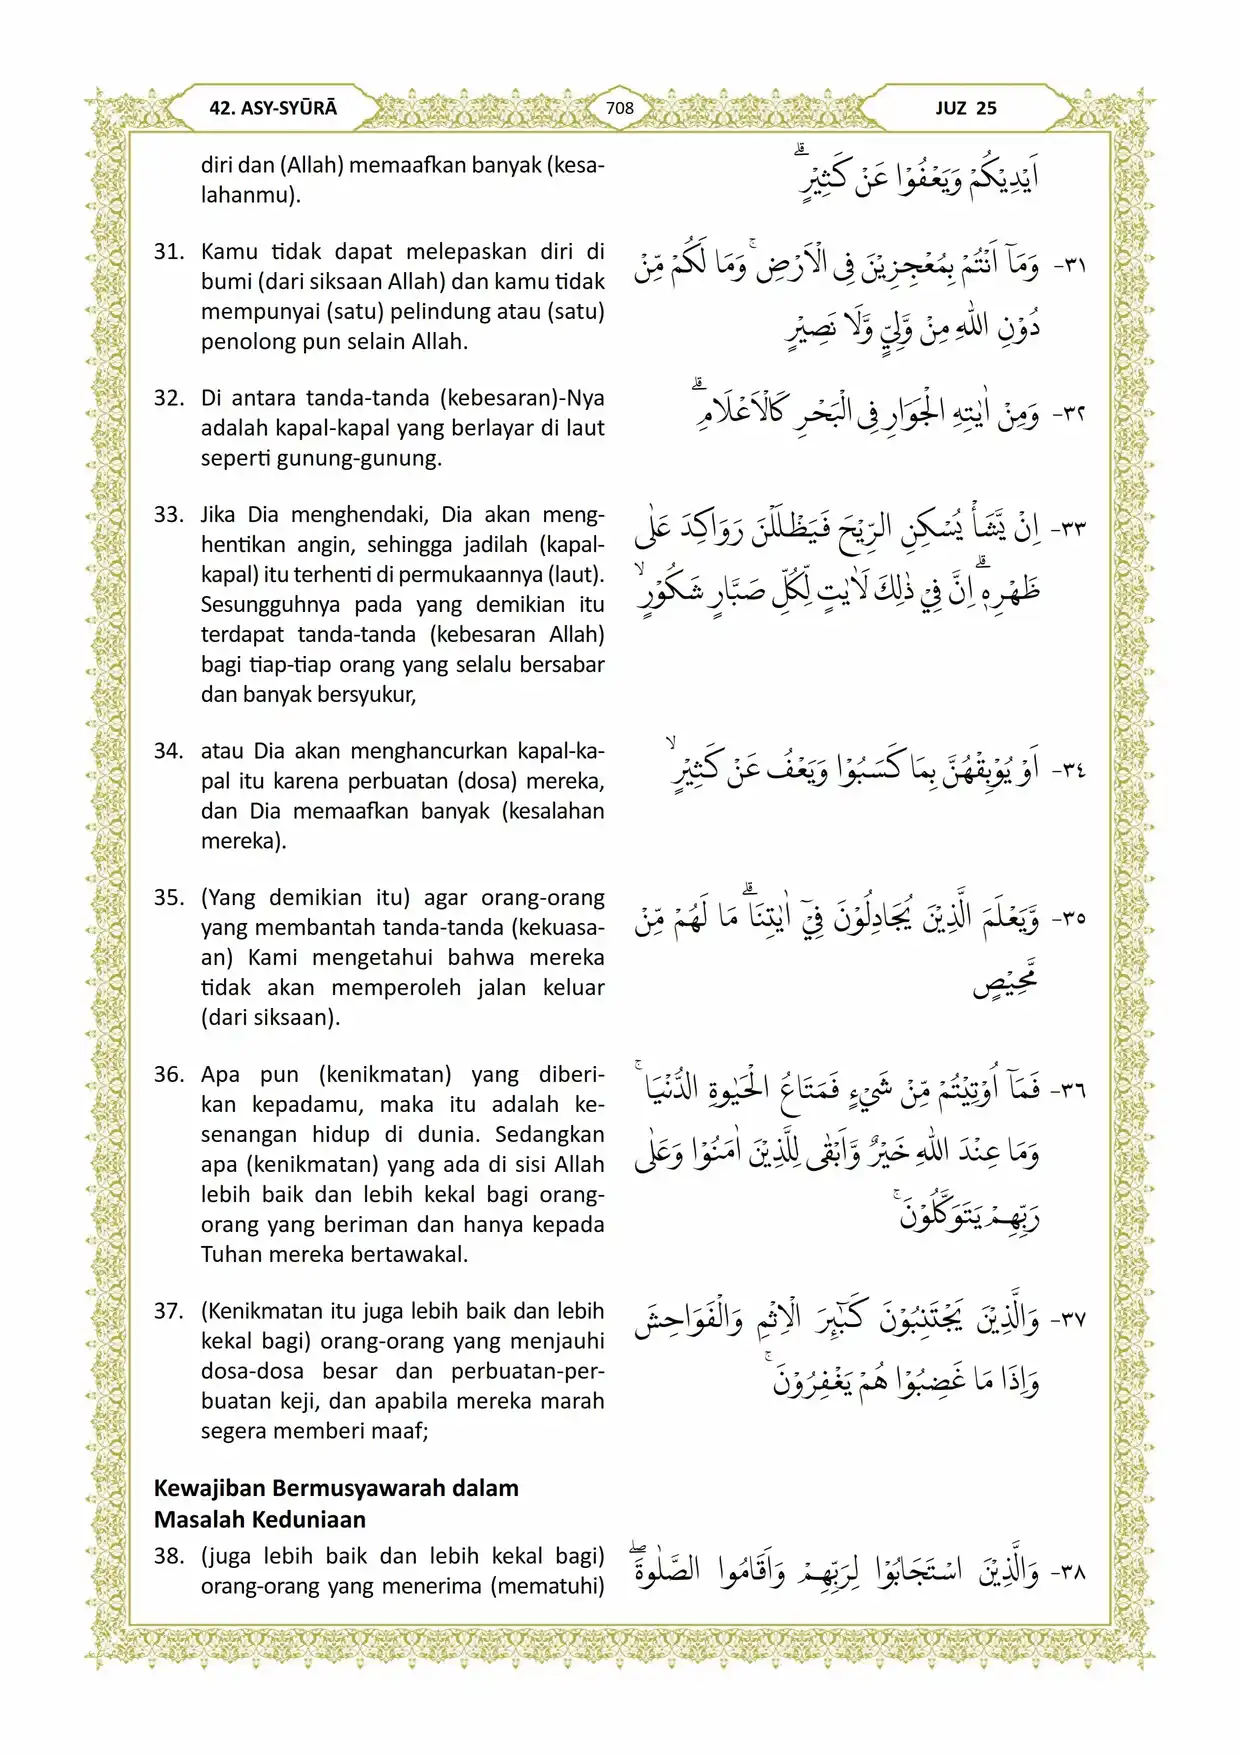 42. ASY-SYŪRĀ
708
JUZ 25
diri dan (Allah) memaafkan banyak (kesa-
lahanmu).
اَيْدِيْكُمْ وَيَعْفُوْا عَنْ كَثِيْرٍۗ
31. Kamu tidak dapat melepaskan diri di
bumi (dari siksaan Allah) dan kamu tidak
mempunyai (satu) pelindung atau (satu)
penolong pun selain Allah.
٣١- وَمَآ اَنْتُمْ بِمُعْجِزِيْنَ فِى الْاَرْضِۚ وَمَا لَكُمْ مِّنْ
دُوْنِ اللّٰهِ مِنْ وَّلِيٍّ وَّلَا نَصِيْرٍ
32. Di antara tanda-tanda (kebesaran)-Nya
adalah kapal-kapal yang berlayar di laut
seperti gunung-gunung.
٣٢- وَمِنْ اٰيٰتِهِ الْجَوَارِ فِى الْبَحْرِ كَالْاَعْلَامِۗ
33. Jika Dia menghendaki, Dia akan meng-
hentikan angin, sehingga jadilah (kapal-
kapal) itu terhenti di permukaannya (laut).
Sesungguhnya pada yang demikian itu
terdapat tanda-tanda (kebesaran Allah)
bagi tiap-tiap orang yang selalu bersabar
dan banyak bersyukur,
٣٣- اِنْ يَّشَأْ يُسْكِنِ الرِّيْحَ فَيَظْلَلْنَ رَوَاكِدَ عَلٰى
ظَهْرِهٖۗ اِنَّ فِيْ ذٰلِكَ لَاٰيٰتٍ لِّكُلِّ صَبَّارٍ شَكُوْرٍۙ
34. atau Dia akan menghancurkan kapal-ka-
pal itu karena perbuatan (dosa) mereka,
dan Dia memaafkan banyak (kesalahan
mereka).
٣٤- اَوْ يُوْبِقْهُنَّ بِمَا كَسَبُوْا وَيَعْفُ عَنْ كَثِيْرٍۙ
35. (Yang demikian itu) agar orang-orang
yang membantah tanda-tanda (kekuasa-
an) Kami mengetahui bahwa mereka
tidak akan memperoleh jalan keluar
(dari siksaan).
٣٥- وَّيَعْلَمَ الَّذِيْنَ يُجَادِلُوْنَ فِيْٓ اٰيٰتِنَاۗ مَا لَهُمْ مِّنْ
مَّحِيْصٍ
36. Apa pun (kenikmatan) yang diberi-
kan kepadamu, maka itu adalah ke-
senangan hidup di dunia. Sedangkan
apa (kenikmatan) yang ada di sisi Allah
lebih baik dan lebih kekal bagi orang-
orang yang beriman dan hanya kepada
Tuhan mereka bertawakal.
٣٦- فَمَآ اُوْتِيْتُمْ مِّنْ شَيْءٍ فَمَتَاعُ الْحَيٰوةِ الدُّنْيَاۚ
وَمَا عِنْدَ اللّٰهِ خَيْرٌ وَّاَبْقٰى لِلَّذِيْنَ اٰمَنُوْا وَعَلٰى
رَبِّهِمْ يَتَوَكَّلُوْنَۚ
37. (Kenikmatan itu juga lebih baik dan lebih
kekal bagi) orang-orang yang menjauhi
dosa-dosa besar dan perbuatan-per-
buatan keji, dan apabila mereka marah
segera memberi maaf;
٣٧- وَالَّذِيْنَ يَجْتَنِبُوْنَ كَبٰۤىِٕرَ الْاِثْمِ وَالْفَوَاحِشَ
وَاِذَا مَا غَضِبُوْا هُمْ يَغْفِرُوْنَۚ
Kewajiban Bermusyawarah dalam
Masalah Keduniaan
38. (juga lebih baik dan lebih kekal bagi)
orang-orang yang menerima (mematuhi)
٣٨- وَالَّذِيْنَ اسْتَجَابُوْا لِرَبِّهِمْ وَاَقَامُوا الصَّلٰوةَۖ